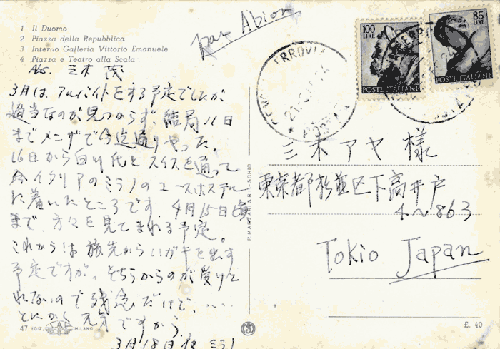 1 Il Duomo
2 Piazza della Repubblica
3 Interno Galleria Vittorio Emanuele
4 Piazza e Teatro alla Scala
par Abion
三木
3月は アルバイトをする予定でしたが
適当なのが見つからず、結局16日
まで で今迄通りやった。
16日から 代と スイスを通って
今イタリアのミラノの ユースホステル
に着いたところです 4月15日
まで、方々を見てまわる予定。
これからは旅先からハガキを出す
予定ですが、そちらからのが受けと
れないので残念だけど、…
とにかく元気ですから
3月18日夜 ミラノ
100
LIRE
POSTE ITALIANE
85
LIRE
POSTE ITALIANE
三木アヤ 様
東京都杉並区下高井戸
4~863
Tokio Japan
47
MILANO
E. 40